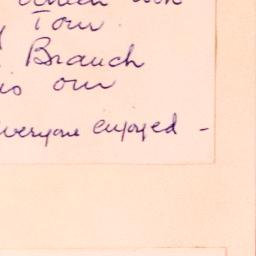 Tour.
Branch
is our
everyone enjoyed -